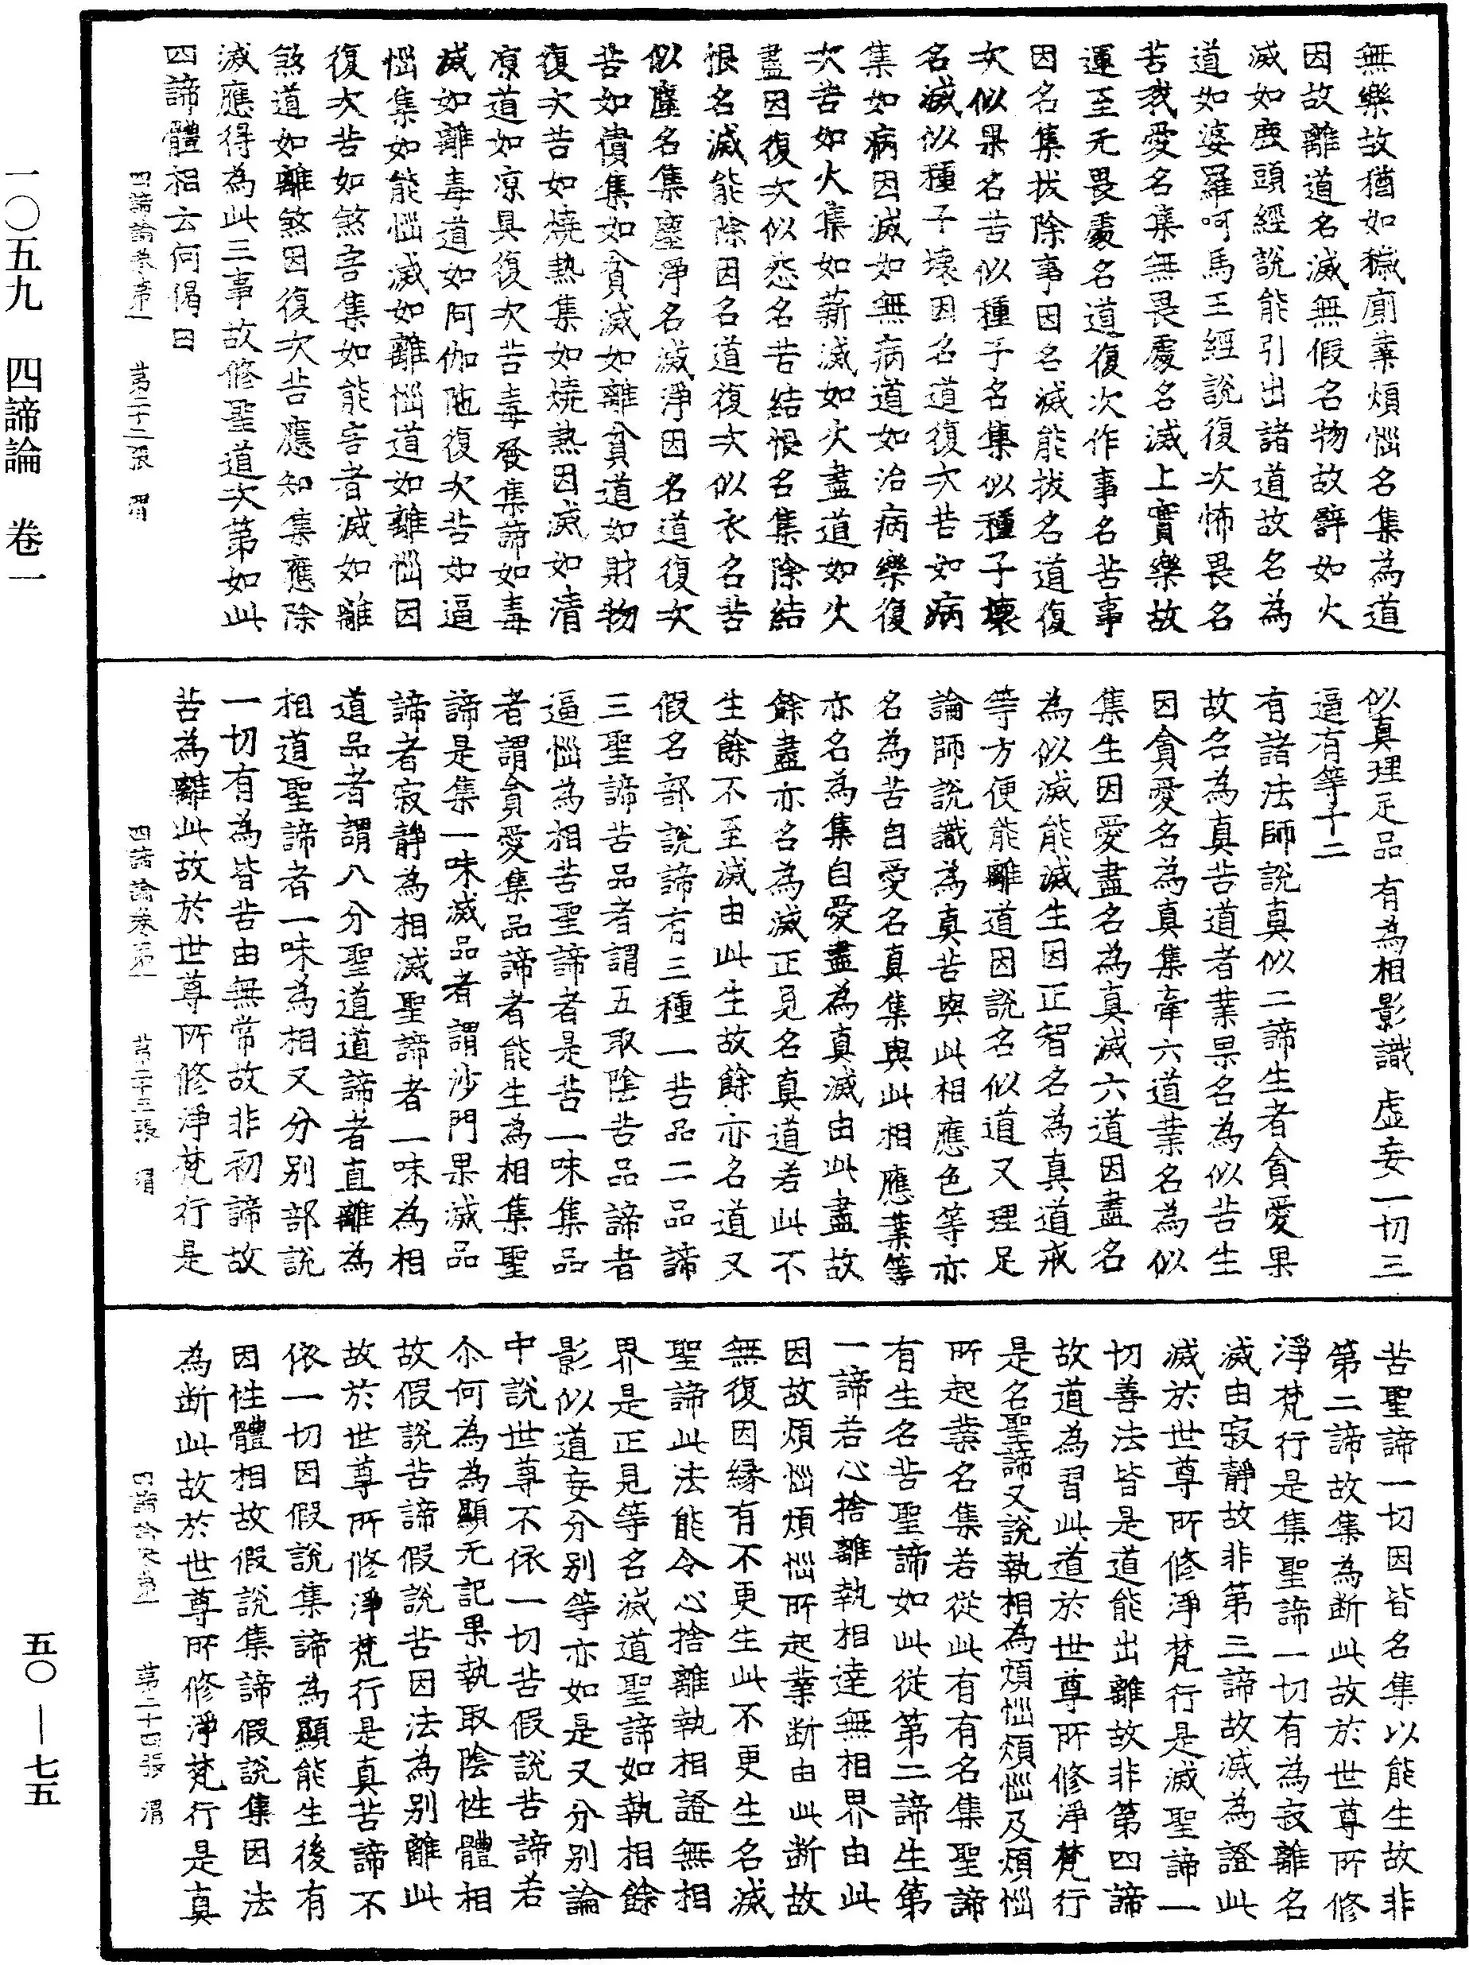 無樂故猶如穢廁業煩惱名集為道
因故離道名滅無假名物故辟如火
滅如鹿頭經說能引出諸道故名為
道如婆羅呵馬王經說復次怖畏名
苦我愛名集無畏處名滅上實樂故
運至无畏處名道復次作事名苦事
因名集拔除事因名滅能拔名道復
次似果名苦似種子名集似種子壞
名滅似種子壞因名道復次苦如病
集如病因滅如無病道如治病藥復
次苦如火集如薪滅如火盡道如火
盡因復次似怨名苦結恨名集除結
恨名滅能除因名道復次似衣名苦
似塵名集塵淨名滅淨因名道復次
苦如債集如貧滅如離貧道如財物
復次苦如燒熱集如燒熱因滅如清
涼道如涼具復次苦毒發集諦如毒
滅如離毒道如阿伽陁復次苦如逼
惱集如能惱滅如離惱道如離惱因
復次苦如煞害集如能害者滅如離
煞道如離煞因復次苦應知集應除
滅應得為此三事故修聖道次第如此
四諦體相云何偈曰
四諦論卷第一 第二十二張 渭
似真理足品 有為相影識 虛妄一切三
逼有等十二
有諸法師說真似二諦生者貪愛果
故名為真苦道者業果名為似苦生
因貪愛名為真集牽六道業名為似
集生因愛盡名為真滅六道因盡名
為似滅能滅生因正智名為真道戒
等方便能離道因說名似道又理足
論師說識為真苦與此相應色等亦
名為苦自愛名真集與此相應業等
亦名為集自愛盡為真滅由此盡故
餘盡亦名為滅正見名真道若此不
生餘不至滅由此生故餘亦名道又
假名部說諦有三種一苦品二品諦
三聖諦苦品者謂五取陰苦品諦者
逼惱為相苦聖諦者是苦一味集品
者謂貪愛集品諦者能生為相集聖
諦是集一味滅品者謂沙門果滅品
諦者寂靜為相滅聖諦者一味為相
道品者謂八分聖道道諦者直離為
相道聖諦者一味為相又分別部說
一切有為皆苦由無常故非初諦故
苦為離此故於世尊所修淨梵行是
四諦論卷第一 第二十三張 渭
苦聖諦一切因皆名集以能生故非
第二諦故集為斷此故於世尊所修
淨梵行是集聖諦一切有為寂離名
滅由寂靜故非第三諦故滅為證此
滅於世尊所修淨梵行是滅聖諦一
切善法皆是道能出離故非第四諦
故道為習此道於世尊所修淨梵行
是名聖諦又說執相為煩惱煩惱及煩惱
所起業名集若從此有有名集聖諦
有生名苦聖諦如此從第二諦生第
一諦若心捨離執相達無相界由此
因故煩惱煩惱所起業斷由此斷故
無復因緣有不更生此不更生名滅
聖諦此法能令心捨離執相證無相
界是正見等名滅道聖諦如執相餘
影似道妄分別等亦如是又分別論
中說世尊不依一切苦假說苦諦若
尒何為為顯无記果執取陰性體相
故假說苦諦假說苦因法為別離此
故於世尊所修淨梵行是真苦諦不
依一切因假說集諦為顯能生後有
因性體相故假說集諦假說集因法
為斷此故於世尊所修淨梵行是真
四諦論卷第一 第二十四張 渭
一〇五九 四諦論 卷一
五〇—七五